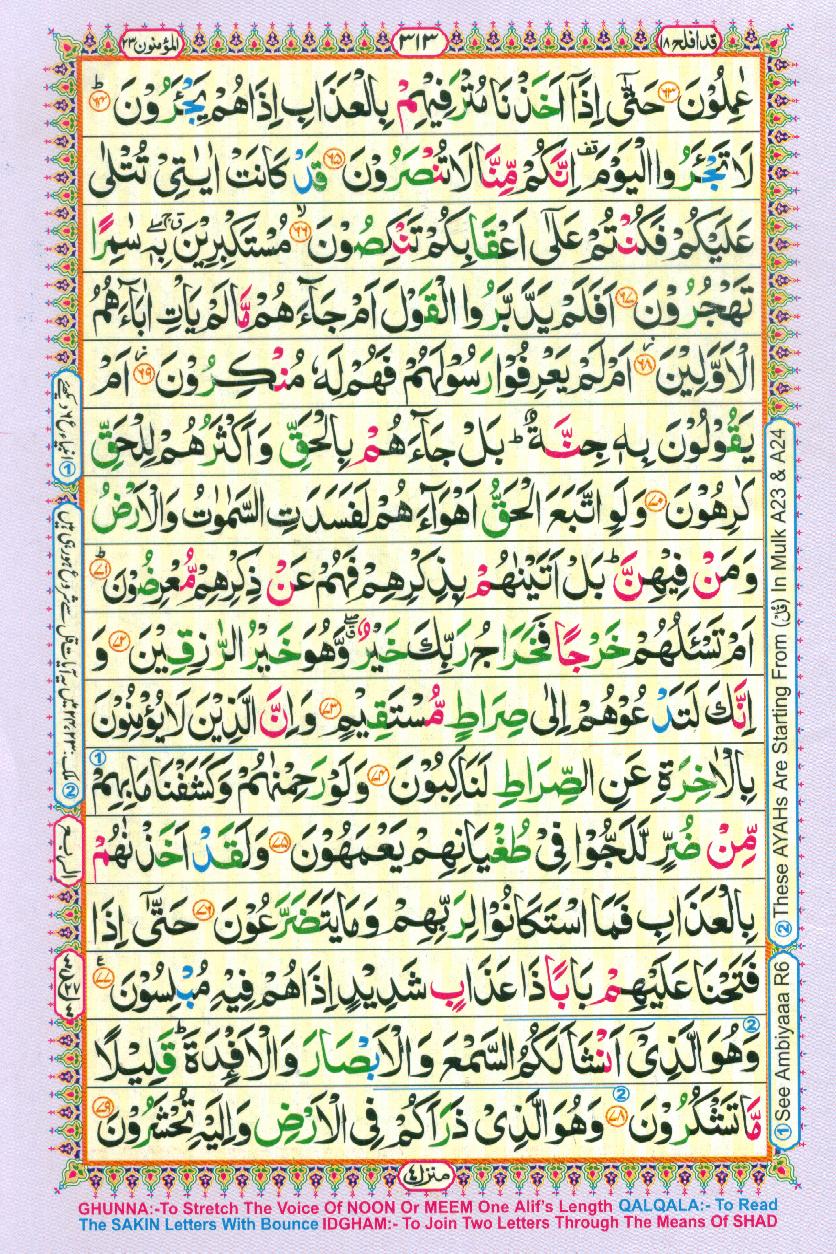 قد افلح ١٨
٣١٣
المؤمنون ٢٣
عٰمِلُوْنَ ﴿٦٣﴾ حَتّٰۤى اِذَاۤ اَخَذْنَا مُتْرَفِيْهِمْ بِالْعَذَابِ اِذَا هُمْ يَجْـَٔرُوْنَ ﴿٦٤﴾ؕ
لَا تَجْـَٔرُوا الْيَوْمَ ۫ اِنَّكُمْ مِّنَّا لَا تُنْصَرُوْنَ ﴿٦٥﴾ قَدْ كَانَتْ اٰيٰتِىْ تُتْلٰى
عَلَيْكُمْ فَكُنْتُمْ عَلٰۤى اَعْقَابِكُمْ تَنْكِصُوْنَ ﴿٦٦﴾ۙ مُسْتَكْبِرِيْنَ ۖۗ بِهٖ سٰمِرًا
تَهْجُرُوْنَ ﴿٦٧﴾ اَفَلَمْ يَدَّبَّرُوا الْقَوْلَ اَمْ جَآءَهُمْ مَّا لَمْ يَاْتِ اٰبَآءَهُمُ
الْاَوَّلِيْنَ ﴿٦٨﴾ اَمْ لَمْ يَعْرِفُوْا رَسُوْلَهُمْ فَهُمْ لَهٗ مُنْكِرُوْنَ ﴿٦٩﴾ اَمْ
يَقُوْلُوْنَ بِهٖ جِنَّةٌ ؕ بَلْ جَآءَهُمْ بِالْحَقِّ وَاَكْثَرُهُمْ لِلْحَقِّ
كٰرِهُوْنَ ﴿٧٠﴾ وَلَوِ اتَّبَعَ الْحَقُّ اَهْوَآءَهُمْ لَفَسَدَتِ السَّمٰوٰتُ وَالْاَرْضُ
وَمَنْ فِيْهِنَّ ؕ بَلْ اَتَيْنٰهُمْ بِذِكْرِهِمْ فَهُمْ عَنْ ذِكْرِهِمْ مُّعْرِضُوْنَ ﴿٧١﴾ؕ
اَمْ تَسْـَٔلُهُمْ خَرْجًا فَخَرَاجُ رَبِّكَ خَيْرٌ ۖۗ وَّهُوَ خَيْرُ الرّٰزِقِيْنَ ﴿٧٢﴾ وَ
اِنَّكَ لَتَدْعُوْهُمْ اِلٰى صِرَاطٍ مُّسْتَقِيْمٍ ﴿٧٣﴾ وَاِنَّ الَّذِيْنَ لَا يُؤْمِنُوْنَ
بِالْاٰخِرَةِ عَنِ الصِّرَاطِ لَنٰكِبُوْنَ ﴿٧٤﴾ وَلَوْ رَحِمْنٰهُمْ وَكَشَفْنَا مَا بِهِمْ
مِّنْ ضُرٍّ لَّلَجُّوْا فِىْ طُغْيَانِهِمْ يَعْمَهُوْنَ ﴿٧٥﴾ وَلَقَدْ اَخَذْنٰهُمْ
بِالْعَذَابِ فَمَا اسْتَكَانُوْا لِرَبِّهِمْ وَمَا يَتَضَرَّعُوْنَ ﴿٧٦﴾ حَتّٰۤى اِذَا
فَتَحْنَا عَلَيْهِمْ بَابًا ذَا عَذَابٍ شَدِيْدٍ اِذَا هُمْ فِيْهِ مُبْلِسُوْنَ ﴿٧٧﴾ ع
وَهُوَ الَّذِىْۤ اَنْشَاَ لَكُمُ السَّمْعَ وَالْاَبْصَارَ وَالْاَفْـِٕدَةَ ؕ قَلِيْلًا
مَّا تَشْكُرُوْنَ ﴿٧٨﴾ وَهُوَ الَّذِىْ ذَرَاَكُمْ فِى الْاَرْضِ وَاِلَيْهِ تُحْشَرُوْنَ ﴿٧٩﴾
منزل ٤
① See Ambiyaaa R6 ② These AYAHs Are Starting From (قُلْ) In Mulk A23 & A24
GHUNNA:-To Stretch The Voice Of NOON Or MEEM One Alif's Length QALQALA:- To Read
The SAKIN Letters With Bounce IDGHAM:- To Join Two Letters Through The Means Of SHAD